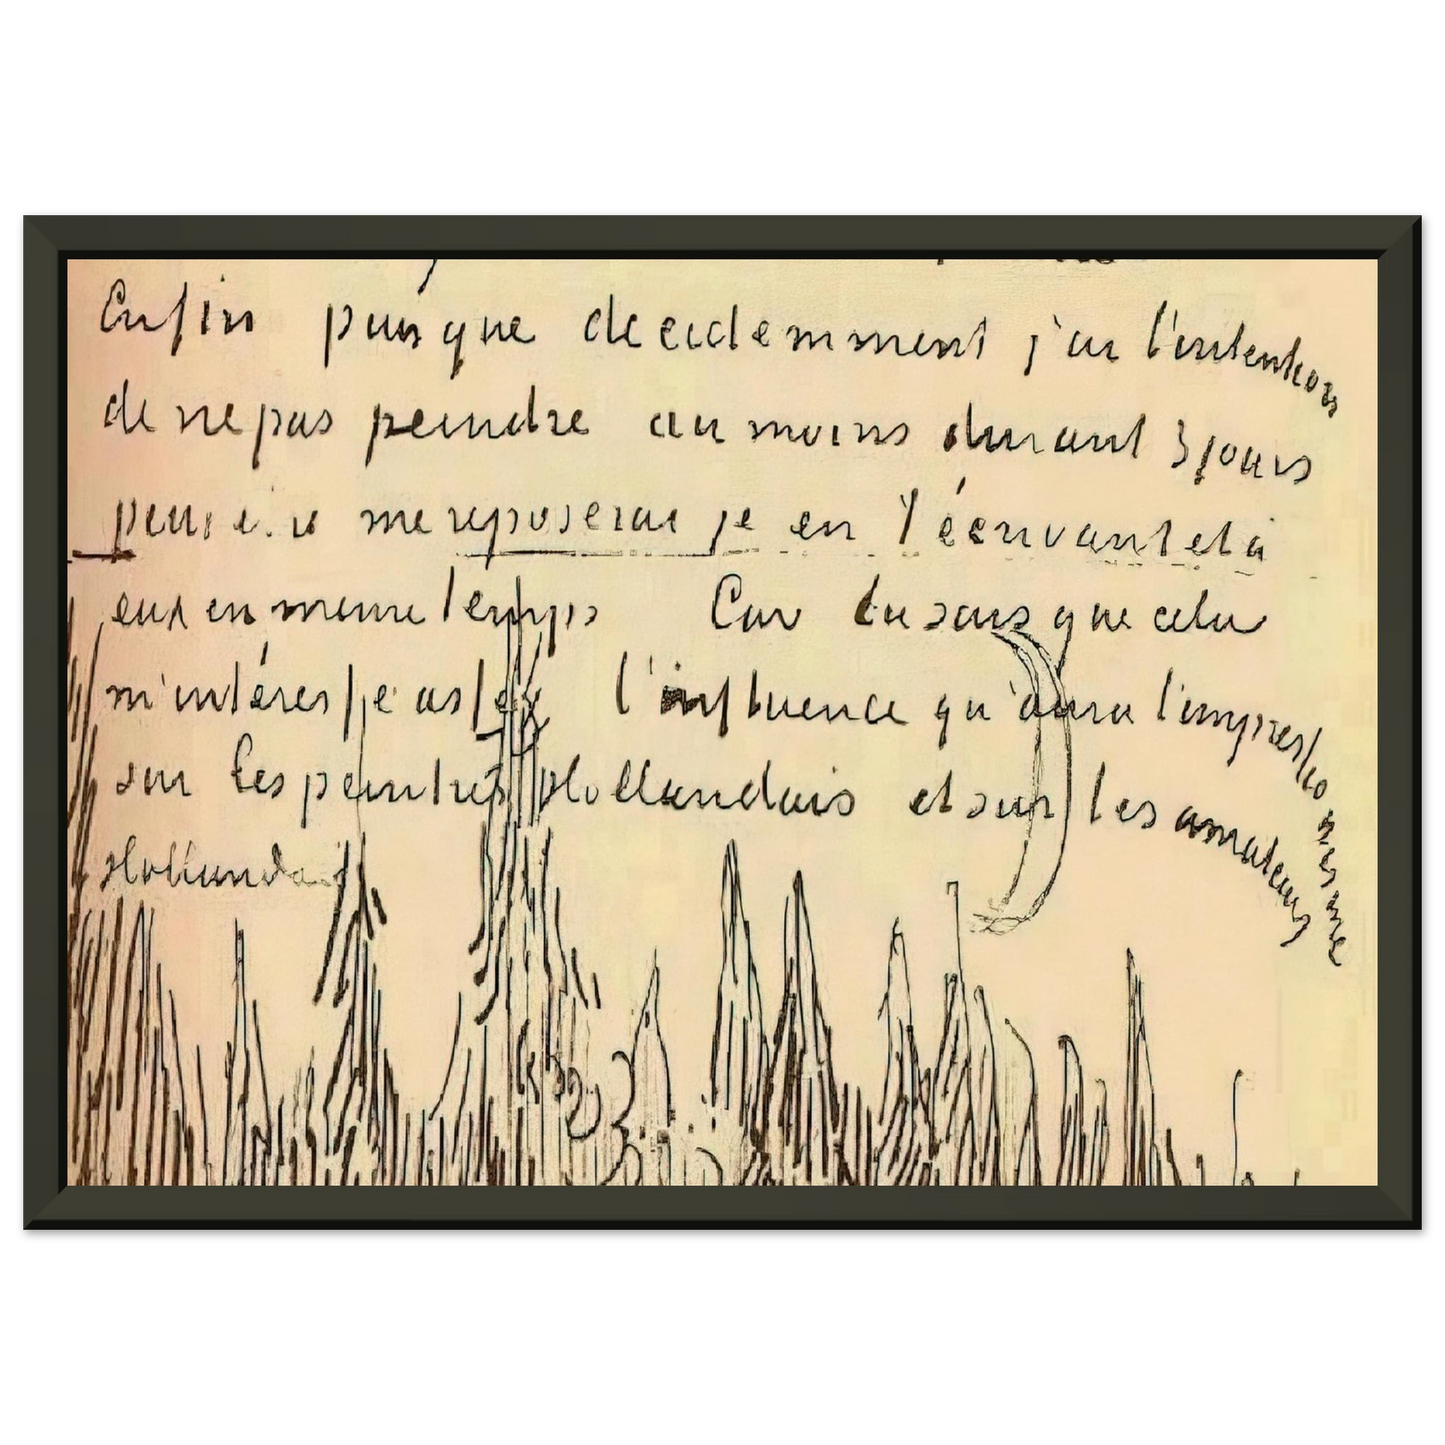 Enfin puisque decidemment j'ai l'intention
de ne pas peindre au moins durant 3 jours
peut être me reposerai je en t'écrivant et à
eux en meme temps Car tu sais que cela
m'intéresse assez l'influence qu'aura l'impressionnisme
sur les peintres Hollandais et sur les amateurs
Hollandais